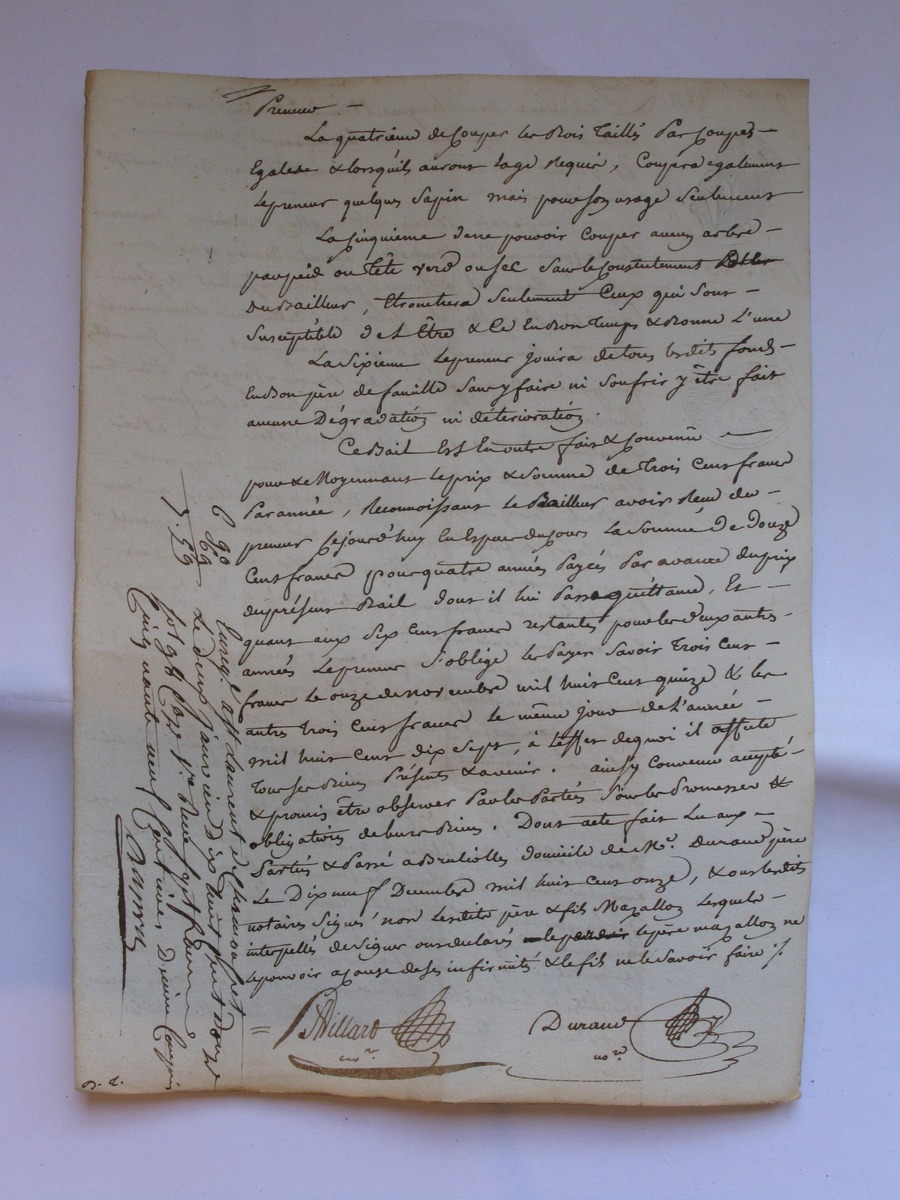 Preneur —
La quatrieme de Couper les Bois Taillis Par Coupes —
Egales & lorsquils auront Lage Requis, Coupera egalement
Le preneur quelques Sapin mais pour Son usage Seulement
La Cinquieme de ne pouvoir Couper aucun arbre —
par pied ou tête verd ou sec Sans le Consentement
Du Bailleur, Seulement Ceux qui Sont —
Susceptible de L'Être & Ce En Bon Temps & Bonne L'une
La Sixieme Le preneur jouira de tous lesdits fonds —
En Bon père de famille Sans y faire ni Soufrir y être fait
aucune Dégradation ni déterioration.
Ce Bail Est En outre fait & Convenu —
pour & Moyennant Le prix & Somme de Trois Cent francs
Par année, Reconnoissant Le Bailleur avoir Recu du —
preneur Cejourd'huy En Espece du jours La Somme De douze
Cent francs pour quatre années Payées Par avance du prix
du présent Bail dont il lui Passe quittance, Et —
quant aux Six Cent francs restantes pour les deux autres —
années Le preneur S'oblige les Payer Savoir Trois Cent —
francs le onze de novembre mil huit Cent quinze & les
autres trois Cent francs Le même jour de L'année —
mil huit Cent dix Sept, à Leffet de quoi il affecte
Tous Ses Biens Présents & avenir. ainsy Convenu accepté —
& promis être observer Par les Parties Sous les Promesses &
obligations de leurs Biens. Dont acte fait Lu aux —
Parties & Passé a Brullioles domicile de Me. Durand père
Le Dix neuf Decembre mil huit Cent onze, & ont lesdits
notaires Signés non lesdits père & fils Mazallon Lesquels —
interpellés de Signer ont declarés le père mazallon ne
Le pouvoir a Cause de Ses infirmités & le fils ne le Savoir faire ./.
Billard
nore
Durand
nore
6 90
69
7. 59
Enreg.é a St Laurent de Chamousset
Le deux janvier Dix huit Cent Douze
fol 98 Case 1re Recu Sept francs
Cinquante neuf Centimes Dixieme Compris